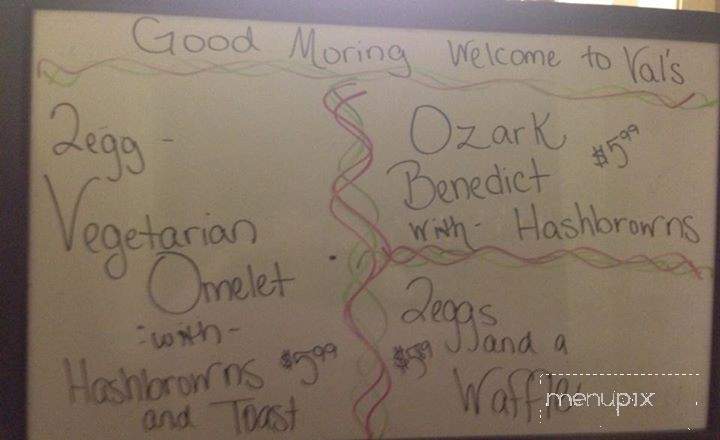 Good Moring Welcome to Val's
2egg -
Vegetarian
Omelet
:with-
Hashbrowns $5.99
and Toast
Ozark
Benedict $5.99
with- Hashbrowns
2eggs
and a
Waffle
menupix